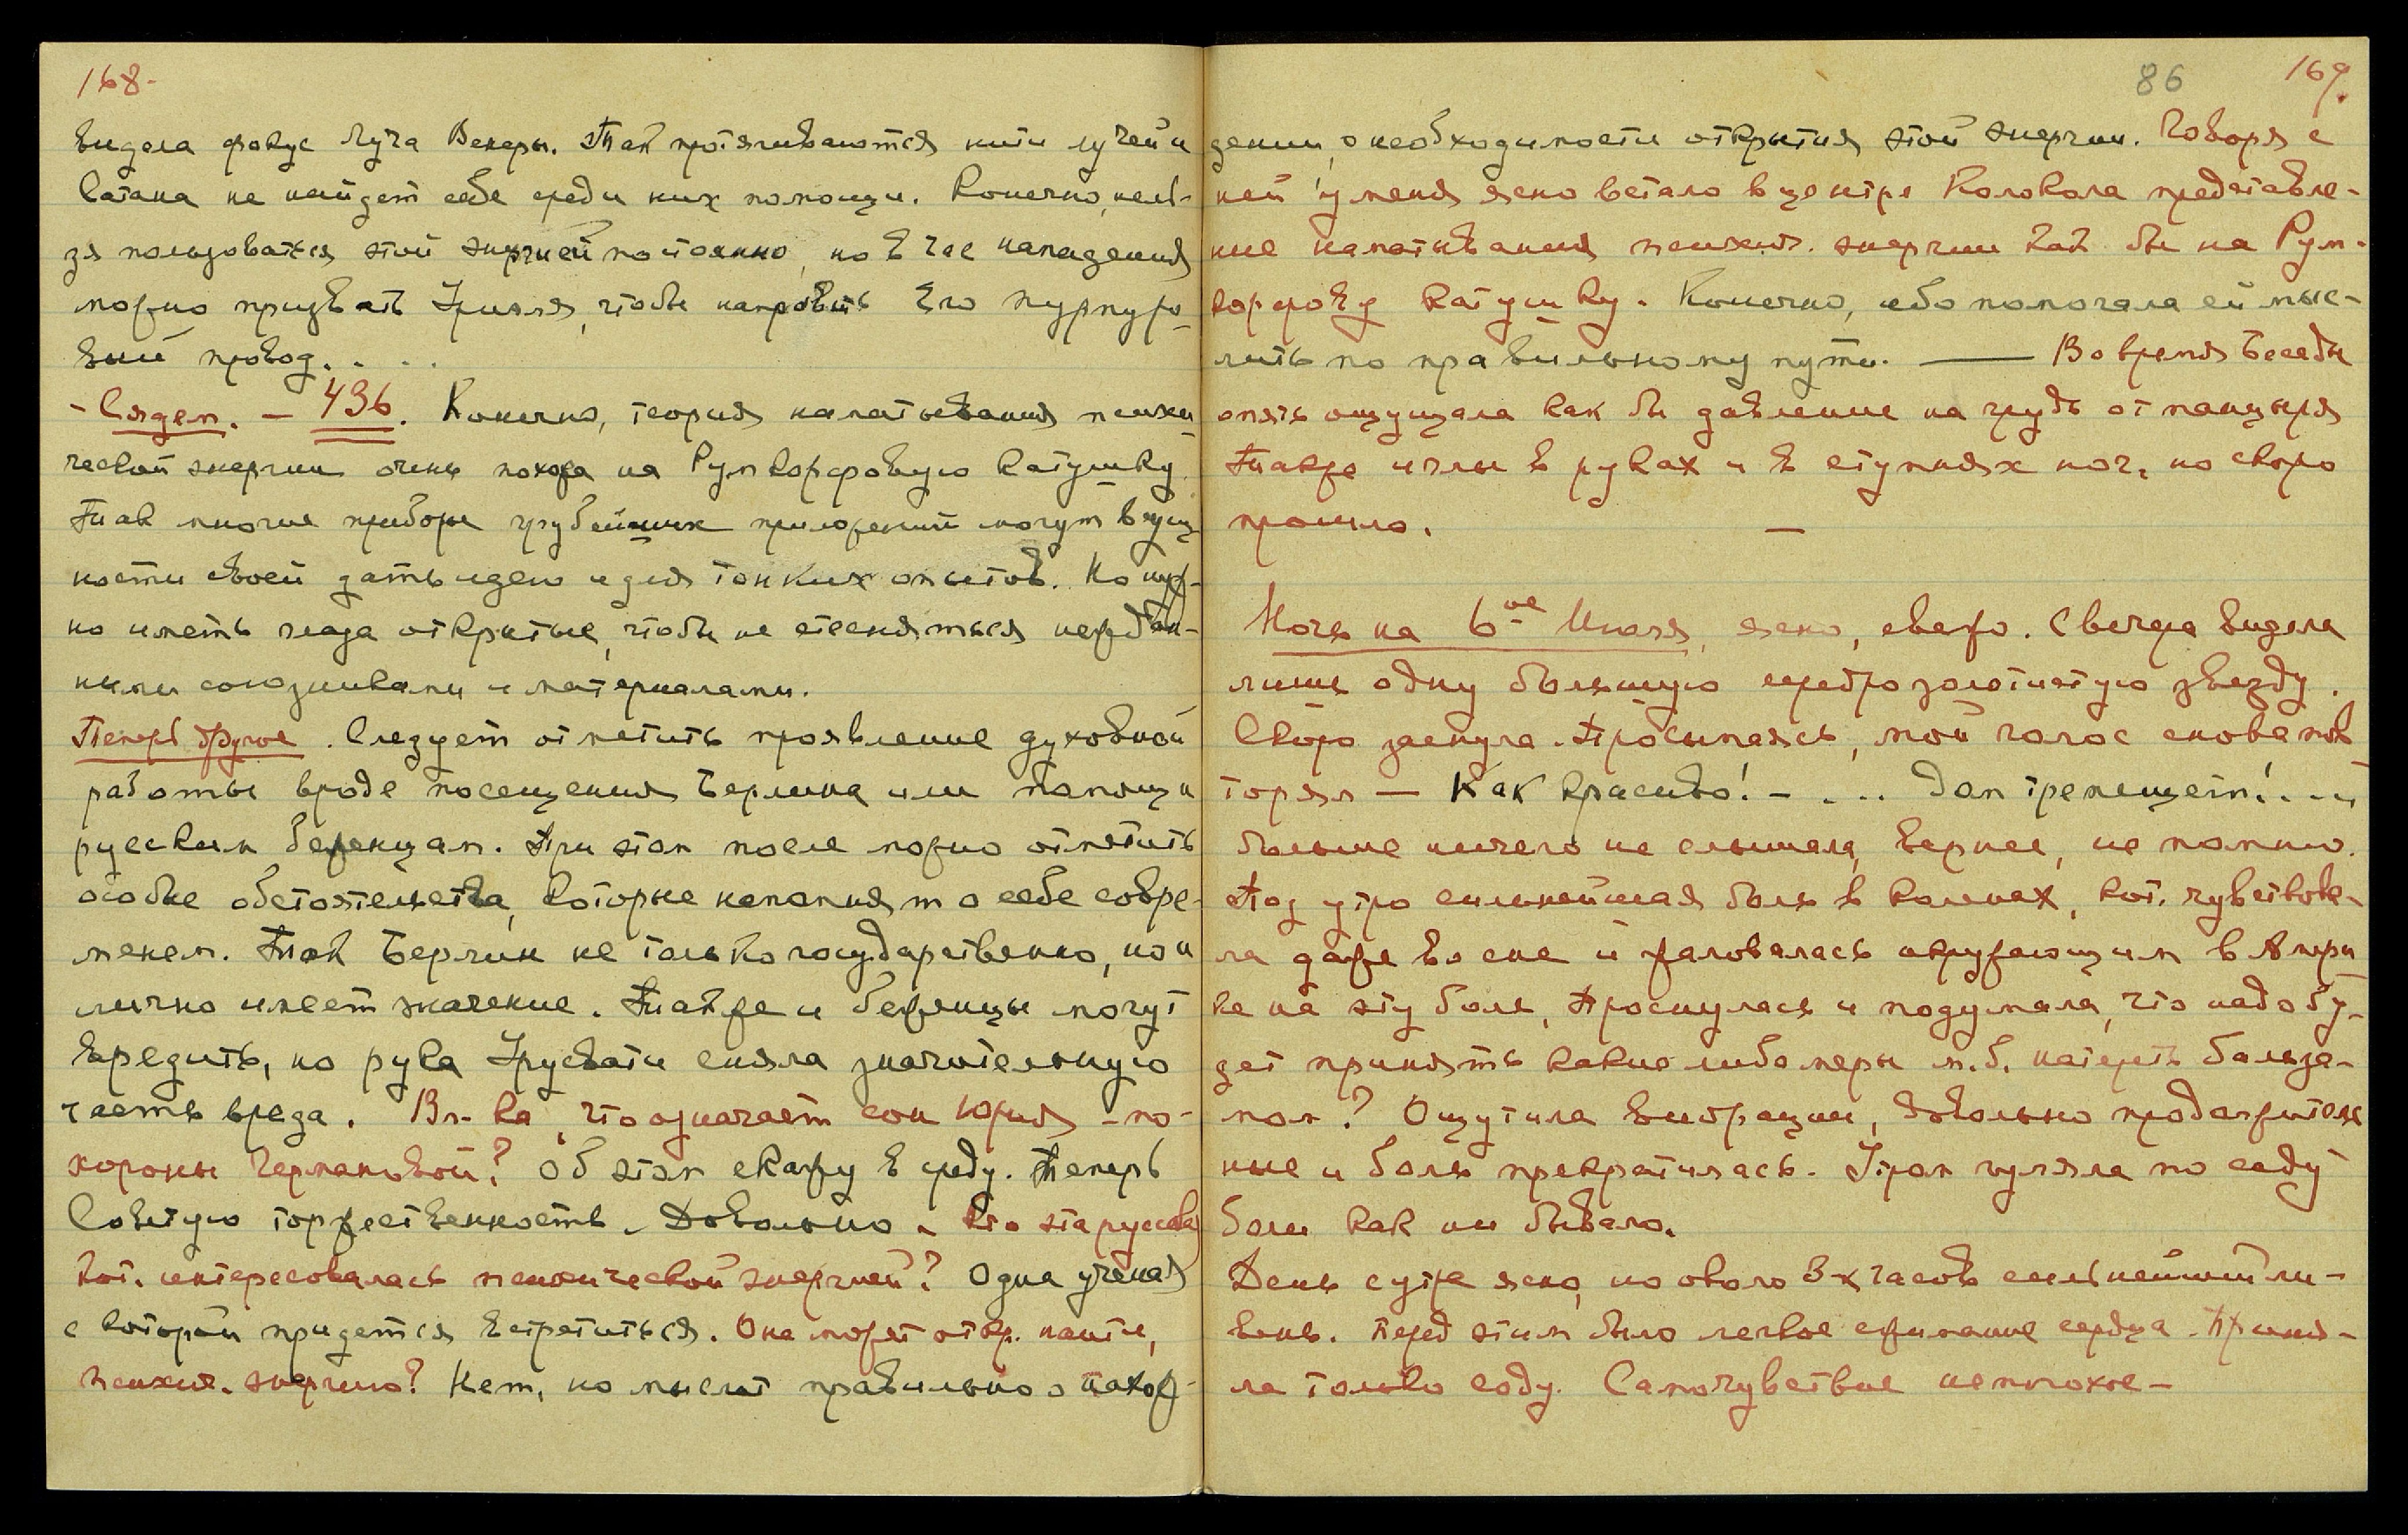 168-
видела фокус Луча Венеры. Так протягиваются нити лучей и
Сатана не найдет себе среди них помощи. Конечно, нель-
зя пользоваться этой энергией постоянно, но в час нападения
можно призвать Уриэля, чтобы направить Его пурпуро-
вый провод. . . .
- Сядем. - 436. Конечно, теория наматывания психи-
ческой энергии очень похожа на Румкорфовую катушку.
Так многие приборы грубейших приложений могут в сущ-
ности своей дать идею и для тонких опытов. Но нуж-
но иметь глаза открытые, чтобы не стесняться нежdан-
ными союзниками и материалами.
Теперь другое. Следует отметить проявление духовной
работы вроде посещения Берлина или помощи
русским беженцам. При этом после можно отметить
особые обстоятельства, которые напомнят о себе совре-
менем. Так Берлин не только государственно, но и
лично имеет значение. Также и беженцы могут
вредить, но рука Урусвати сняла значительную
часть вреда. Вл-ка, что означает сон Юрия - по-
хороны Германовой? Об этом скажу в среду. Теперь
Советую торжественность. Довольно. Кто эта русская
кот. интересовалась психической энергией? Одна ученая
с которой придется встретиться. Она может откр. найти,
психич. энергию? Нет, но мыслит правильно о нахож-
86 169.
дении, о необходимости открытия этой энергии. Говоря с
ней у меня ясно встало в центре Колокола представле-
ние наматывания психич. энергии как бы на Рум-
корфову катушку. Конечно, ибо помогала ей мыс-
лить по правильному пути. — Во время Беседы
опять ощущала как бы давление на грудь от панцыря
Также иглы в руках и в ступнях ног, но скоро
прошло. —
Ночь на 6-ое Июля, ясно, свежо. С вечера видела
лишь одну большую серебро золотистую звезду.
Скоро заснула. Просыпаясь, мой голос снова пов
торял — Как красиво! - . . . Дом трепещет! . . - и
больше ничего не слышала, вернее, не помню.
Под утро сильнейшая боль в коленах, кот. чувствова-
ла даже во сне и жаловалась окружающим в Амери
ке на эту боль, Проснулась и подумала, что надо бу-
дет принять какие либо меры м.б. натереть бальза-
мом? Ощутила вибрации, довольно продолжитель
ные и боль прекратилась. Утром гуляла по саду
боли как ни бывало.
День с утра ясно, но около 3-х часов сильнейший ли-
вень. Перед этим было легкое сжимание сердца. Приня-
ла только соду. Самочувствие неплохое -